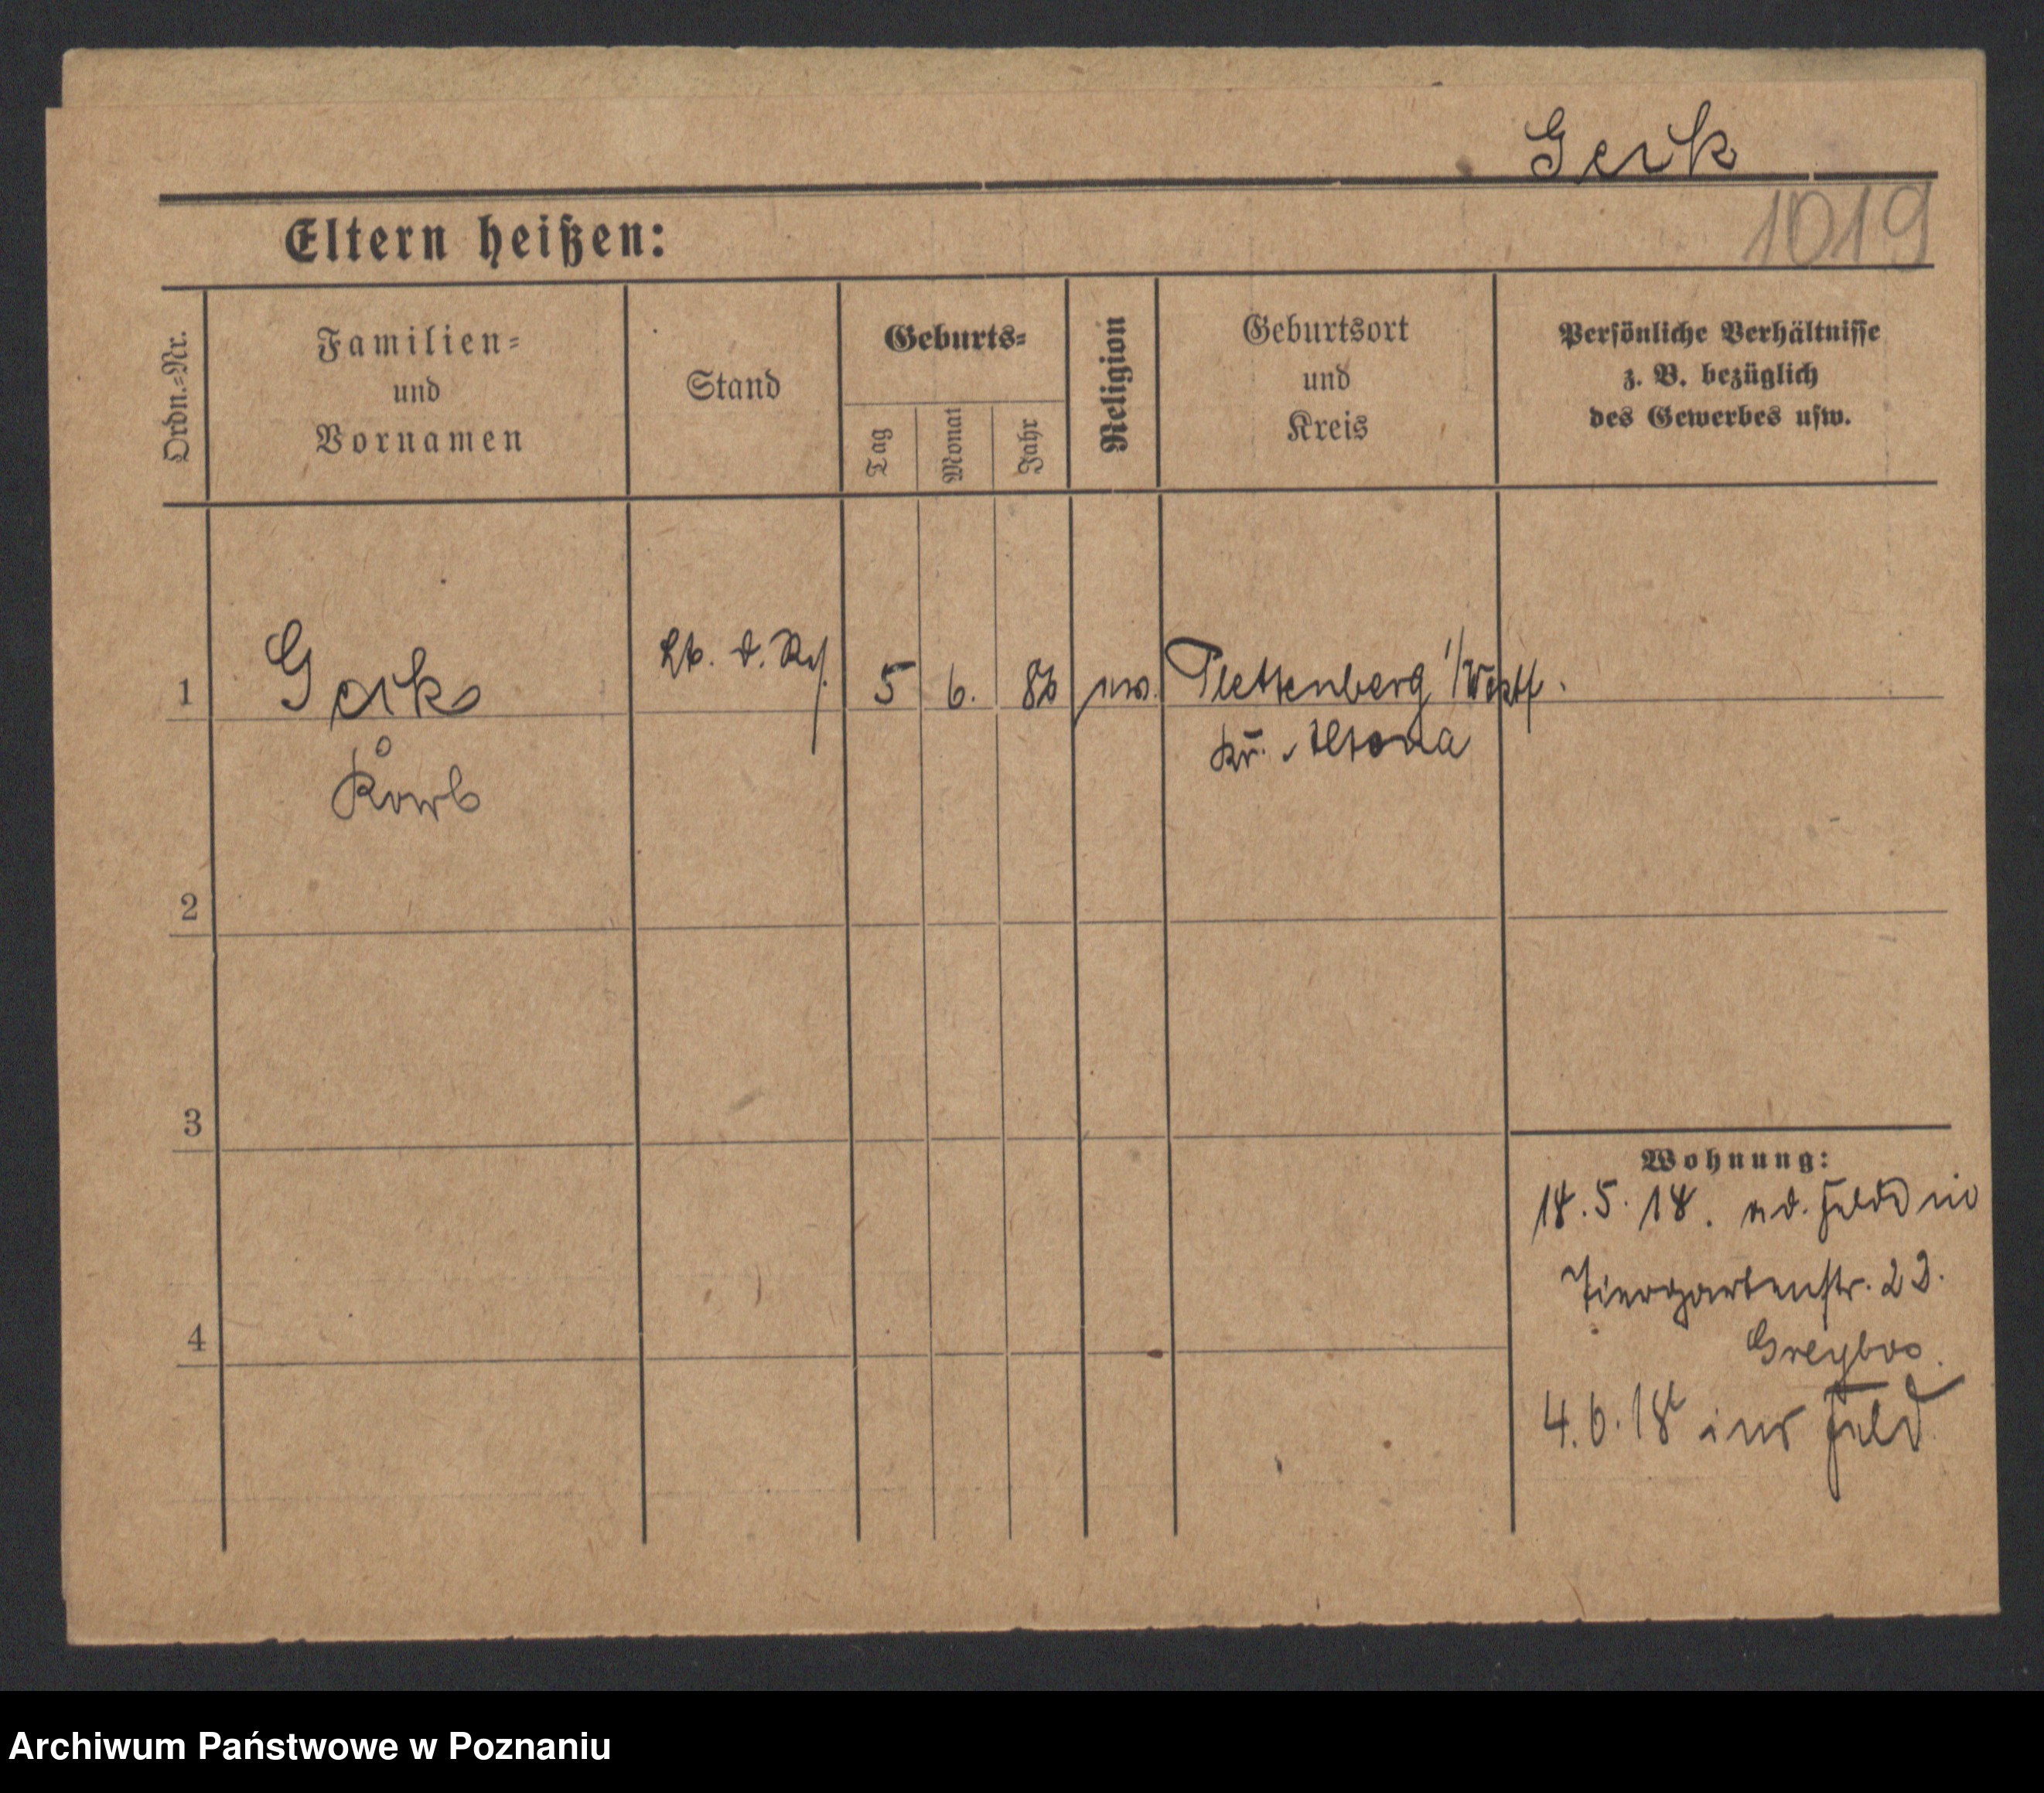 Gerk
1019
Eltern heißen:
Ordn.-Nr.
Familien-
und
Vornamen
Stand
Geburts-
Tag
Monat
Jahr
Religion
Geburtsort
und
Kreis
Persönliche Verhältnisse
z. B. bezüglich
des Gewerbes usw.
1
Gerk
Lt. d. Rs.
5
6.
86
Plettenberg i/Westf.
Kr. Altona
2
3
4
Wohnung:
18.5.18.
Tiergartenstr. 22.
4.6.18 ins Feld
Archiwum Państwowe w Poznaniu